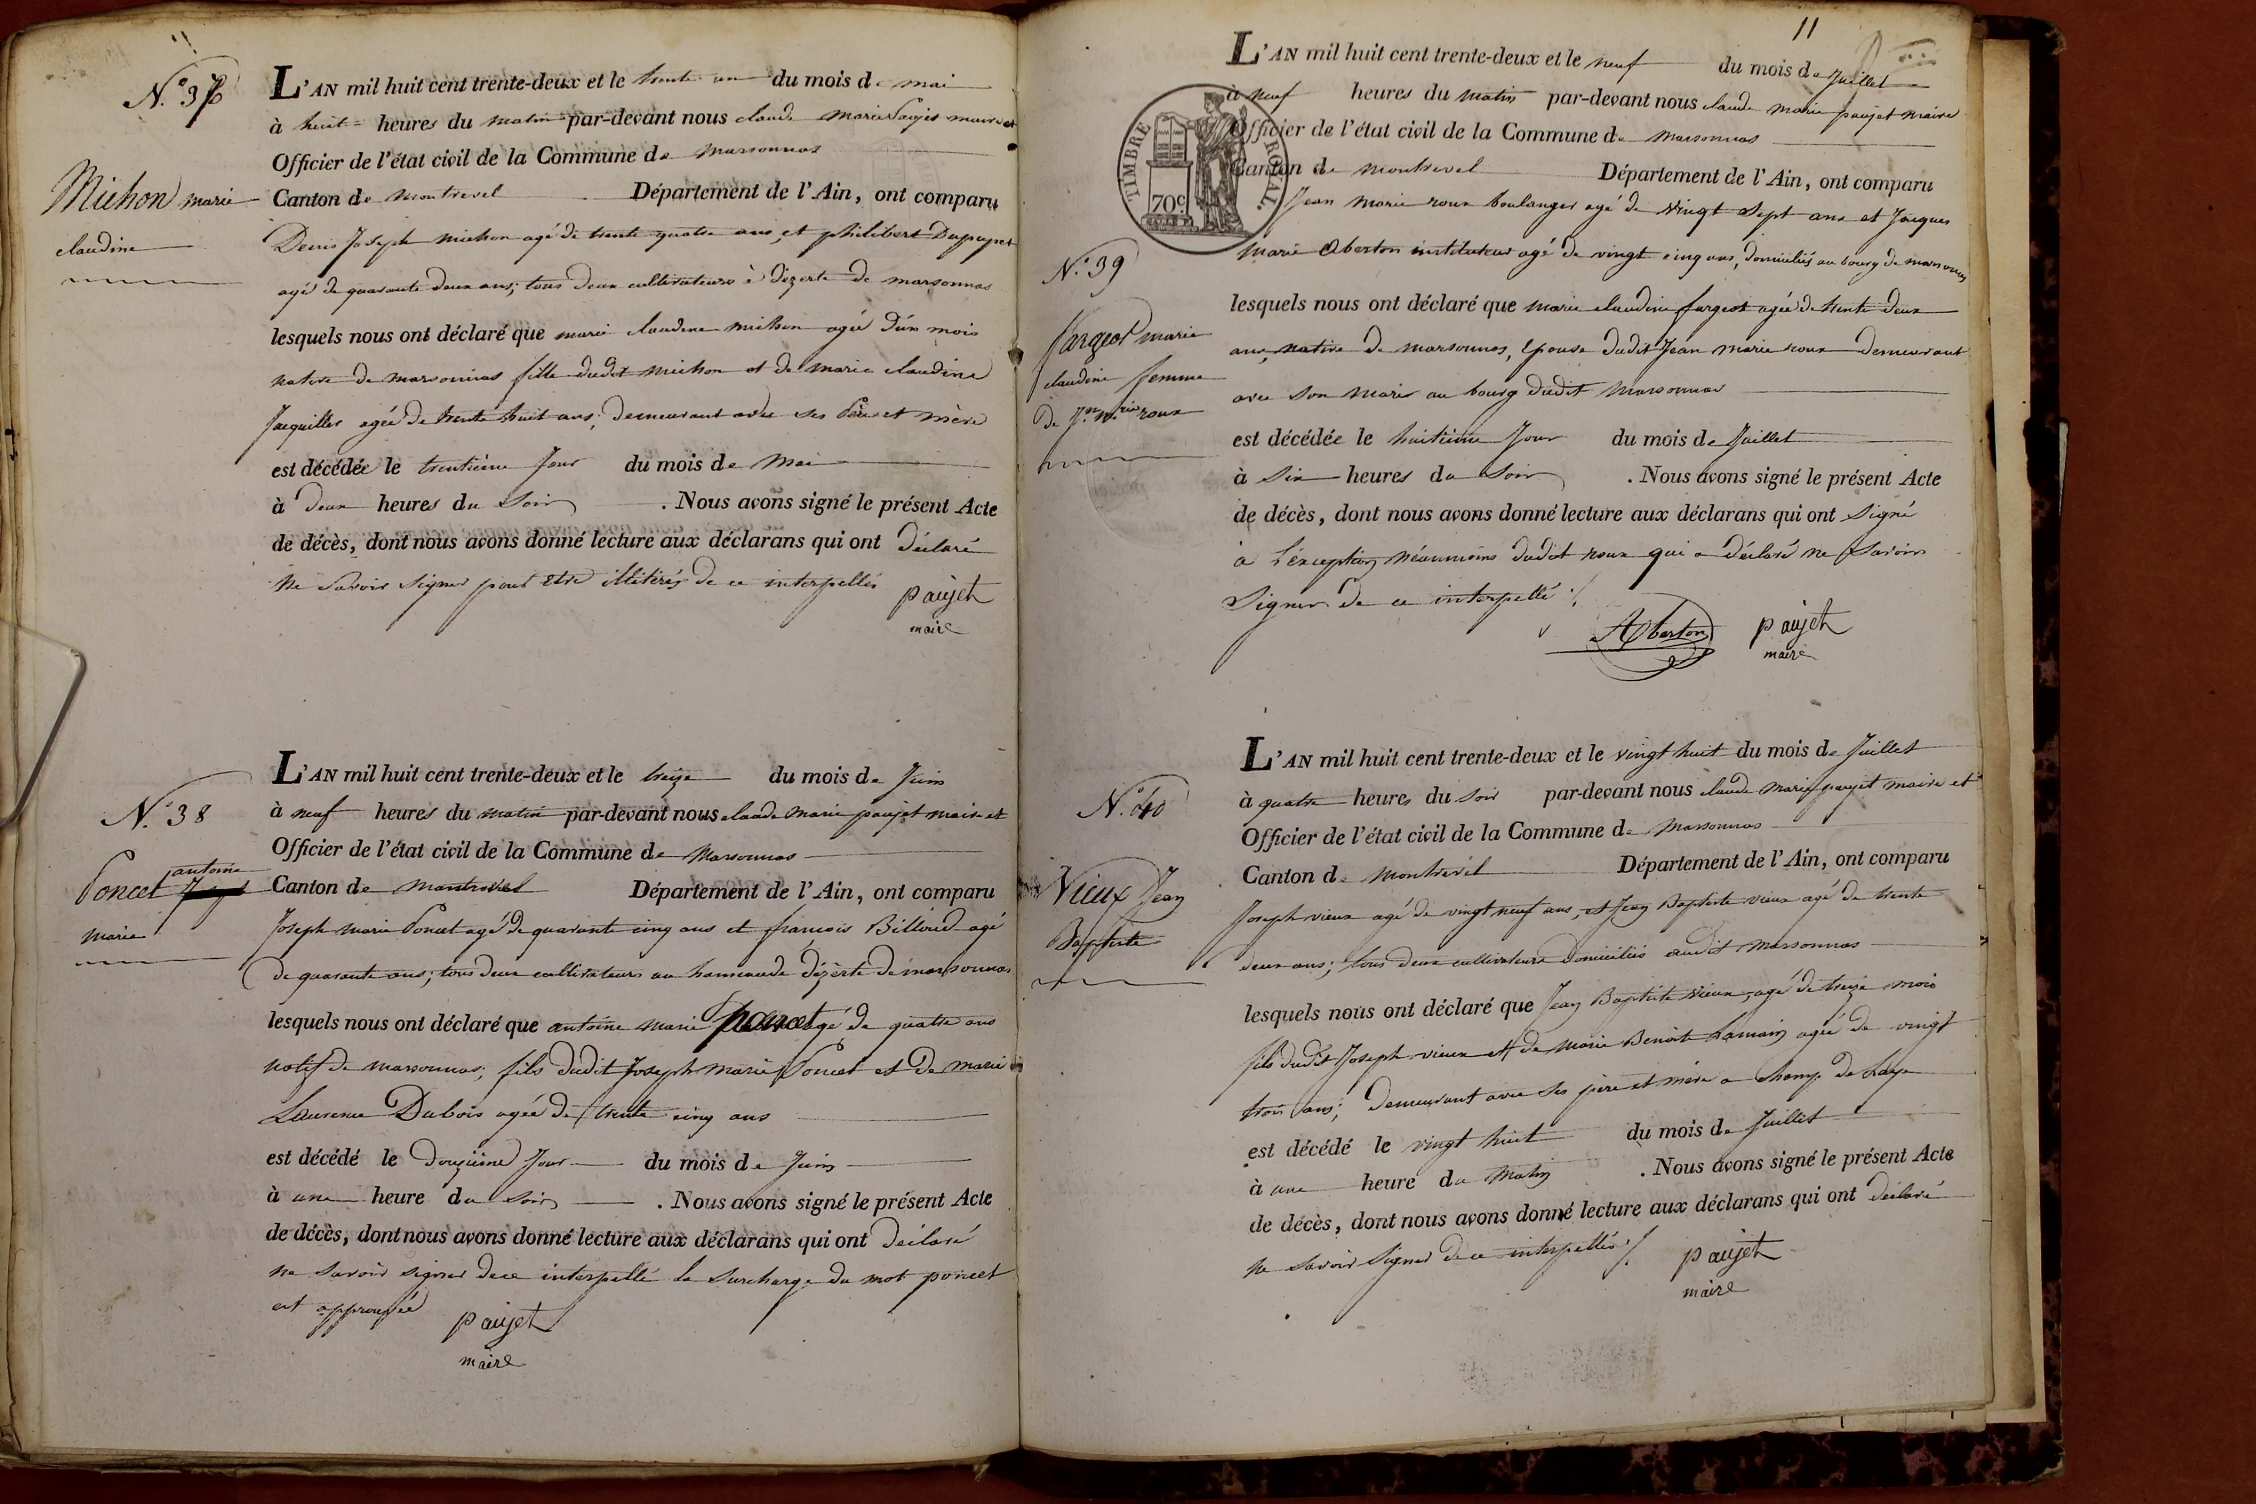 N.° 37
Michon marie
claudine
L'AN mil huit cent trente-deux et le trente un du mois de mai
à huit heures du matin par-devant nous claude marie paujet maire et
Officier de l'état civil de la Commune de marsonnas
Canton de montrevel Département de l'Ain, ont comparu
Denis Joseph michon agé de trente quatre ans, et philibert Dupupet
agé de quarante deux ans; tous deux cultivateurs à dézerte de marsonnas
lesquels nous ont déclaré que marie claudine michon agée d'un mois
native de marsonnas fille dudit michon et de marie claudine
Jacquillet agée de trente huit ans; demeurant avec ses père et mère
est décédée le trentième jour du mois de mai
à deux heures du soir . Nous avons signé le présent Acte
de décès, dont nous avons donné lecture aux déclarans qui ont déclaré
ne savoir signer pour être illitérés de ce interpellés
paujet
maire
N.° 38
antoine
Poncet
marie
L'AN mil huit cent trente-deux et le treize du mois de Juin
à neuf heures du matin par-devant nous claude marie paujet maire et
Officier de l'état civil de la Commune de marsonnas
Canton de montrevel Département de l'Ain, ont comparu
Joseph marie Poncet agé de quarante cinq ans et francois Billoud agé
de quarante ans; tous deux cultivateurs au hameau de dézerte de marsonnas
lesquels nous ont déclaré que antoine marie poncet agé de quatre ans
natif de marsonnas; fils dudit Joseph marie Poncet et de marie
Laurence Dubois agée de trente cinq ans
est décédé le douzième jour du mois de Juin
à une heure du soir . Nous avons signé le présent Acte
de décès, dont nous avons donné lecture aux déclarans qui ont déclaré
ne savoir signer de ce interpellé la surcharge du mot poncet
est approuvée
paujet
maire
11
TIMBRE ROYAL.
70c
N.° 39
fargeot marie
claudine femme
de Jn. mrie roux
L'AN mil huit cent trente-deux et le neuf du mois de Juillet
à neuf heures du matin par-devant nous claude marie paujet maire
Officier de l'état civil de la Commune de marsonnas
Canton de montrevel Département de l'Ain, ont comparu
Jean marie roux boulanger agé de vingt sept ans et Jacques
marie Oberton instituteur agé de vingt cinq ans, domiciliés au bourg de marsonnas
lesquels nous ont déclaré que marie claudine fargeot agée de trente deux
ans, native de marsonnas, épouse dudit Jean marie roux demeurant
avec son mari au bourg dudit marsonnas
est décédée le huitième Jour du mois de Juillet
à six heures du soir . Nous avons signé le présent Acte
de décès, dont nous avons donné lecture aux déclarans qui ont signé
à l'exception néanmoins dudit roux qui a déclaré ne savoir
signer de ce interpellé
Oberton paujet
maire
N.° 40
Vieux Jean
Baptiste
L'AN mil huit cent trente-deux et le vingt huit du mois de Juillet
à quatre heures du soir par-devant nous claude marie paujet maire et
Officier de l'état civil de la Commune de marsonnas
Canton de montrevel Département de l'Ain, ont comparu
Joseph vieux agé de vingt neuf ans, et Jean Baptiste vieux agé de trente
deux ans; tous deux cultivateurs domiciliés audit marsonnas
lesquels nous ont déclaré que Jean Baptiste vieux, agé de treize mois
fils dudit Joseph vieux et de marie Benoite agée de vingt
trois ans; demeurant avec ses père et mère a champ de
est décédé le vingt huit du mois de Juillet
à une heure du matin . Nous avons signé le présent Acte
de décès, dont nous avons donné lecture aux déclarans qui ont déclaré
ne savoir signer de ce interpellés
paujet
maire